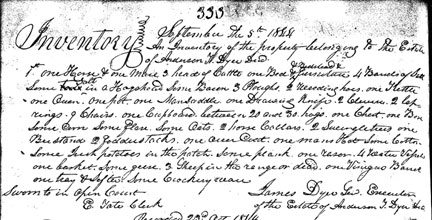 333
September the 5th 1844
Inventory An Inventory of the property belonging to the Estate
of Anderson T. Dyer Decd
1st one Horse & one Mare 3 head of Cattle one Bed & furniture 4 Barrels of Salt
Some Salt in a Hogshead Some Bacon 3 Ploughs, 2 weeding hoes, one Kettle
one Oven. one pot. one Mansaddle one Drawing Knife. 2 Clevises. 2 lap
rings. 9 Chairs. one Cupboard between 20 and 30 hogs, one Chest. one
Some Corn Some flax. Some Oats. 2 horse Collars. 2 Swingletrees one
Bedstead 2 fodderstacks. one one mans Hat Some Cotton
Some Irish potatoes in the patch. Some plank. one razor. 4 Vessels
one basket. Some geese. 2 Sheep in the range or dead. one Vinegar Barrel
one tray & Sifter Some Crockery ware
Sworn to in Open Court James Dyer Executor
E. Tate Clerk of the Estate of Anderson T. Dyer Decd
Recorded 23d Oct. 1844